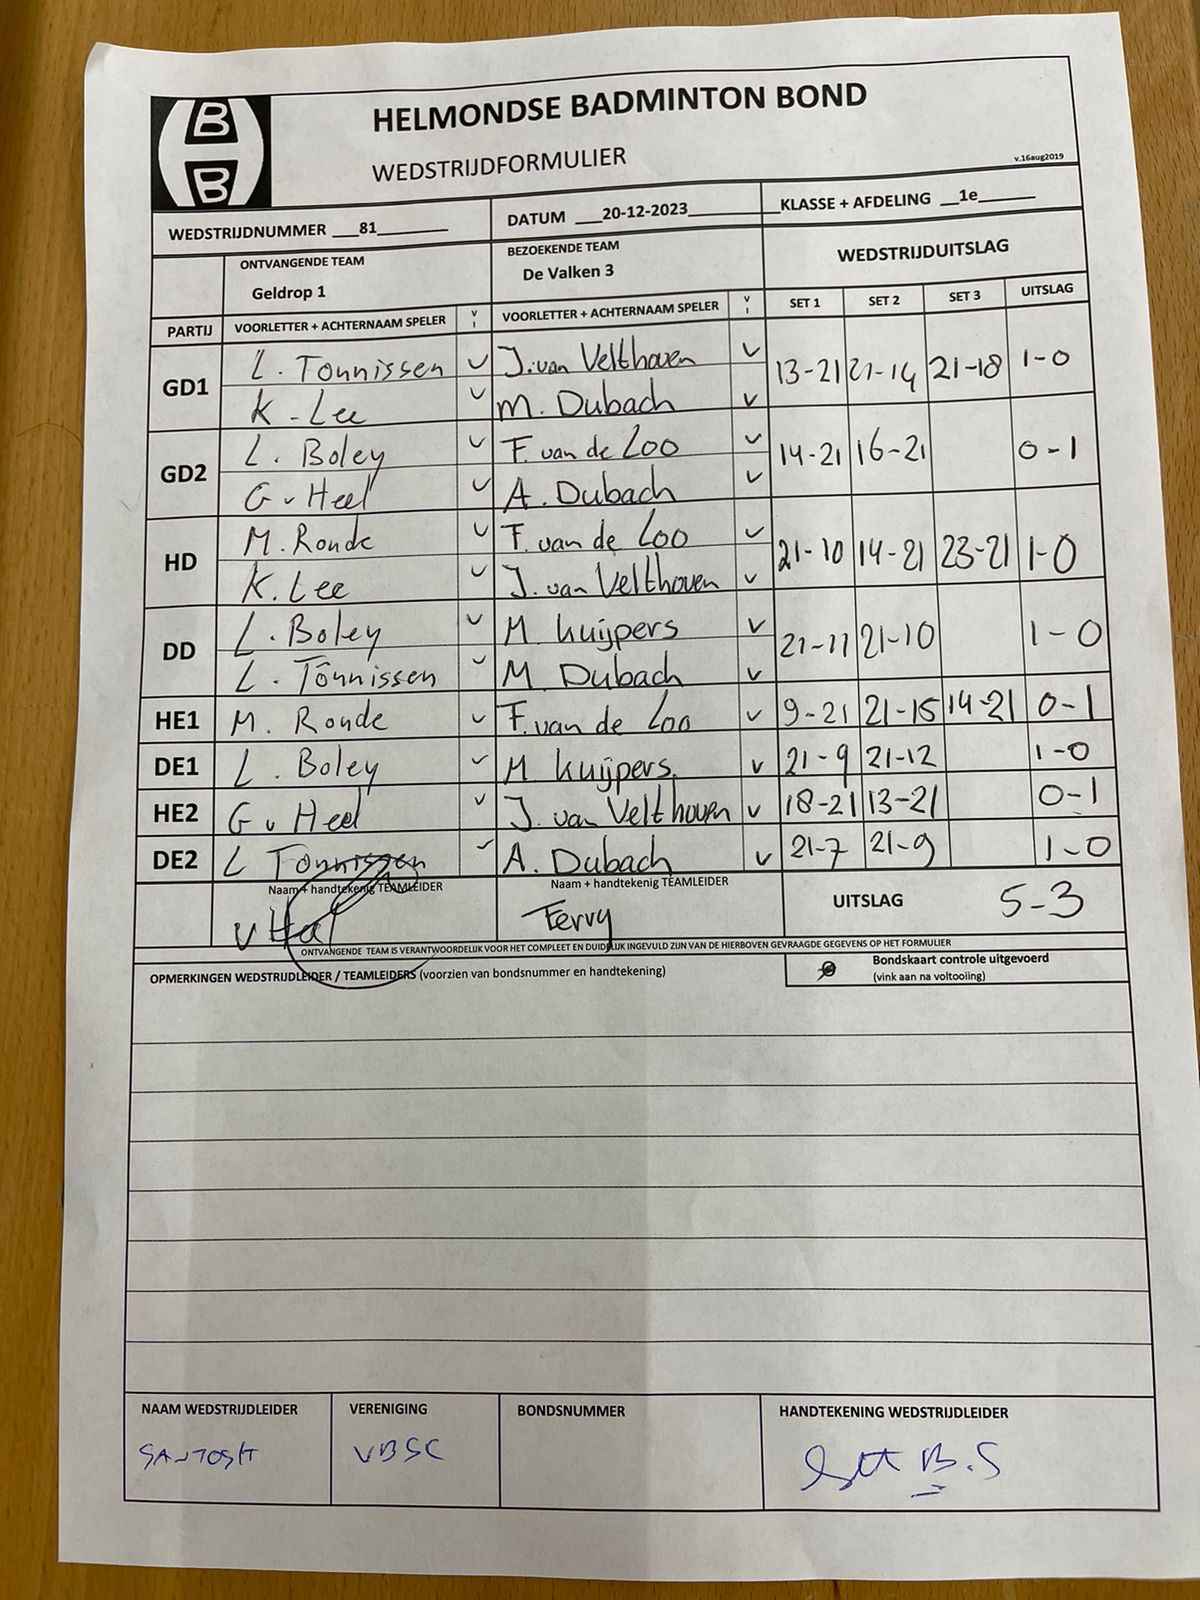 B
B
HELMONDSE BADMINTON BOND
WEDSTRIJDFORMULIER
v.16aug2019
WEDSTRIJDNUMMER ___81________ DATUM ___20-12-2023__________ KLASSE + AFDELING __1e______
ONTVANGENDE TEAM BEZOEKENDE TEAM WEDSTRIJDUITSLAG
Geldrop 1 De Valken 3
PARTIJ VOORLETTER + ACHTERNAAM SPELER V I VOORLETTER + ACHTERNAAM SPELER V I SET 1 SET 2 SET 3 UITSLAG
GD1 L. Tönnissen v J. van Velthoven v 13-21 21-14 21-18 1-0
K. Lee v M. Dubach v
GD2 L. Boley v F. van de Loo v 14-21 16-21 0-1
G v Heel v A. Dubach v
HD M. Ronde v F. van de Loo v 21-10 14-21 23-21 1-0
K. Lee v J. van Velthoven v
DD L. Boley v M Kuijpers v 21-11 21-10 1-0
L. Tönnissen v M. Dubach v
HE1 M. Ronde v F. van de Loo v 9-21 21-15 14-21 0-1
DE1 L. Boley v M Kuijpers. v 21-9 21-12 1-0
HE2 G v Heel v J. van Velthoven v 18-21 13-21 0-1
DE2 L Tönnissen v A. Dubach v 21-7 21-9 1-0
Naam + handtekenig TEAMLEIDER Naam + handtekenig TEAMLEIDER UITSLAG 5-3
Ferry
ONTVANGENDE TEAM IS VERANTWOORDELIJK VOOR HET COMPLEET EN DUIDELIJK INGEVULD ZIJN VAN DE HIERBOVEN GEVRAAGDE GEGEVENS OP HET FORMULIER
OPMERKINGEN WEDSTRIJDLEIDER / TEAMLEIDERS (voorzien van bondsnummer en handtekening) Bondskaart controle uitgevoerd
(vink aan na voltooiing)
NAAM WEDSTRIJDLEIDER VERENIGING BONDSNUMMER HANDTEKENING WEDSTRIJDLEIDER
SANTOSH VBSC B.S